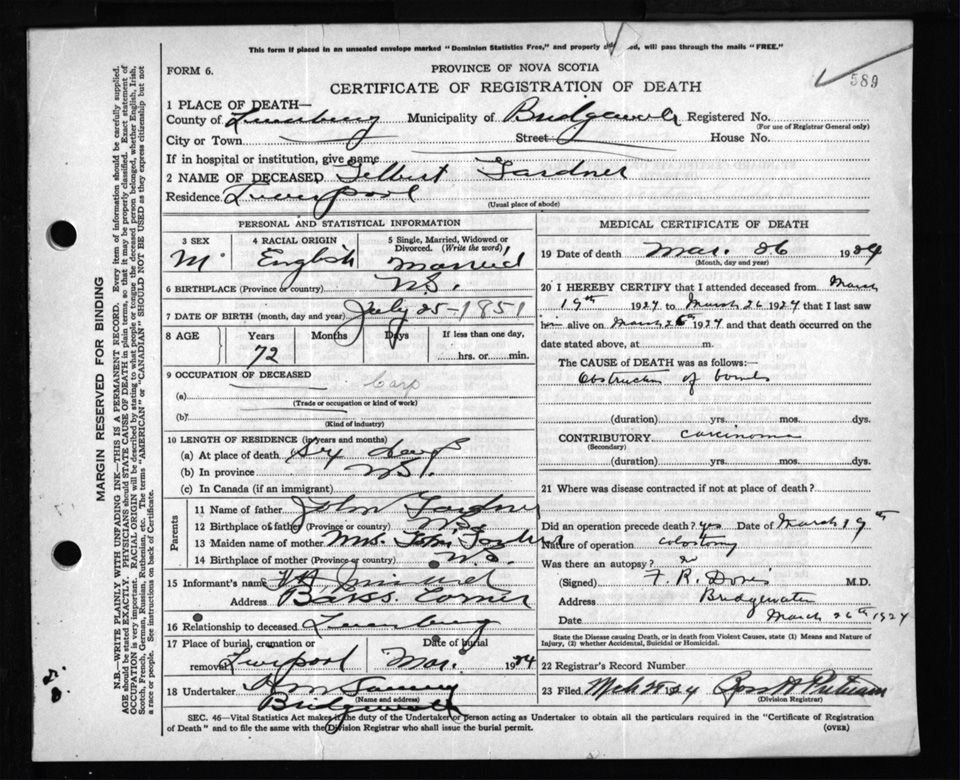 This form if placed in an unsealed envelope marked "Dominion Statistics Free," and properly ed, will pass through the mails "FREE."
FORM 6.
PROVINCE OF NOVA SCOTIA
589
CERTIFICATE OF REGISTRATION OF DEATH
1 PLACE OF DEATH—
County of Lunenburg Municipality of Bridgewater Registered No.
(For use of Registrar General only)
City or Town Street House No.
If in hospital or institution, give name
2 NAME OF DECEASED Gilbert Gardner
Residence Liverpool
(Usual place of abode)
PERSONAL AND STATISTICAL INFORMATION
3 SEX 4 RACIAL ORIGIN 5 Single, Married, Widowed or Divorced. (Write the word)
M English Married
6 BIRTHPLACE (Province or country) N.S.
7 DATE OF BIRTH (month, day and year) July 25-1851
8 AGE Years Months Days If less than one day,
72 hrs. or min.
9 OCCUPATION OF DECEASED
(a) Carp
(Trade or occupation or kind of work)
(b)
(Kind of industry)
10 LENGTH OF RESIDENCE (in years and months)
(a) At place of death Six days
(b) In province N.S.
(c) In Canada (if an immigrant)
Parents
11 Name of father John Gardner
12 Birthplace of father (Province or country) N.S.
13 Maiden name of mother Mrs. John
14 Birthplace of mother (Province or country) N.S.
15 Informant's name
Address Barss Corner
16 Relationship to deceased Lunenburg
17 Place of burial, cremation or Date of burial
removal Liverpool Mar. 1924
18 Undertaker
(Name and address)
Bridgewater
MEDICAL CERTIFICATE OF DEATH
19 Date of death Mar. 26 1924
(Month, day and year)
20 I HEREBY CERTIFY that I attended deceased from March
19th 1924 to March 26 1924 that I last saw
him alive on March 26th 1924 and that death occurred on the
date stated above, at m.
The CAUSE of DEATH was as follows:—
Obstruction of bowels
(duration) yrs. mos. dys.
CONTRIBUTORY carcinoma
(Secondary)
(duration) yrs. mos. dys.
21 Where was disease contracted if not at place of death?
Did an operation precede death? yes Date of March 19th
Nature of operation colostomy
Was there an autopsy?
(Signed) F. R. Davis M.D.
Address Bridgewater
Date March 26th 1924
State the Disease causing Death, or in death from Violent Causes, state (1) Means and Nature of Injury, (2) whether Accidental, Suicidal or Homicidal.
22 Registrar's Record Number
23 Filed Mch 1924 Putnam
(Division Registrar)
SEC. 46—Vital Statistics Act makes it the duty of the Undertaker or person acting as Undertaker to obtain all the particulars required in the "Certificate of Registration
of Death" and to file the same with the Division Registrar who shall issue the burial permit. (OVER)
MARGIN RESERVED FOR BINDING
N.B.—WRITE PLAINLY WITH UNFADING INK—THIS IS A PERMANENT RECORD. Every item of information should be carefully supplied.
AGE should be stated EXACTLY. PHYSICIANS should STATE CAUSE OF DEATH in plain terms, so that it may be properly classified. Exact statement of
OCCUPATION is very important. RACIAL ORIGIN will be described by stating to what people or tongue the deceased person belonged, whether English, Irish,
Scotch, French, German, Russian, Ruthenian, etc. The terms "AMERICAN" or "CANADIAN" SHOULD NOT BE USED as they express citizenship but not
a race or people. See instructions on back of Certificate.